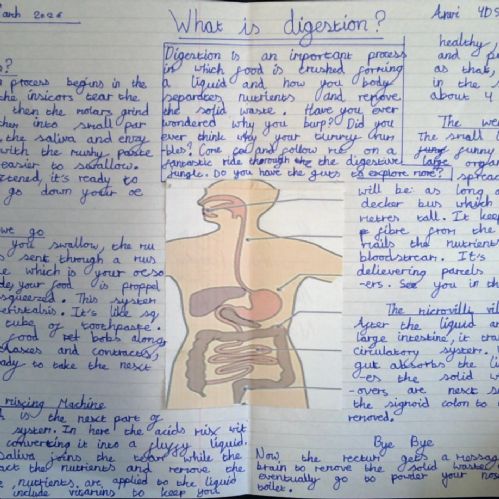 arch 2026
What is digestion?
Anvi 4DS
Digestion is an important process
in which food is crushed forming
a liquid and how you body
separates nutrients and remove
the solid waste. Have you ever
wondered why you burp? Did you
ever think why your tummy rum
bles? Come and follow me on a
fantastic ride thorough the digestive
jungle. Do you have the guts to explore more?
?
process begins in the
the insicors tear the
then the molars grind
into small par
the saliva and enzy
with the mushy paste
easier to swallow.
tened, it's ready to
go down your oe
we go
you swallow, the mu
sent through a mus
e which is your oeso
de, your food is propel
squeezed. This system
peristalsis. It's like sq
tube of toothpaste.
food bobs along
elaxes and contracts,
eady to take the next
mixing Machine
is the next part of
system. In here the acids mix wit
converting it into a fluffy liquid.
saliva joins the team while the
act the nutrients and remove the
nutrients are applied to the liquid
include vitamins to keep you
healthy
and
as that,
in the s
about 4
The we
The small
funny
large organ
spread
will be as long
decker bus which
metres tall. It keep
fibre from the
mails the nutrients
bloodstream. It's
delievering parcels
-ers. See you in th
The microvilli vil
After the liquid a
large intestine, it tra
circulatory system.
gut absorbs the li
-es the solid w
-overs are next se
the sigmoid colon to
removed.
Bye Bye
Now the rectum gets a messag
brain to remove the solid waste
eventually go to powder your nos
toilet.